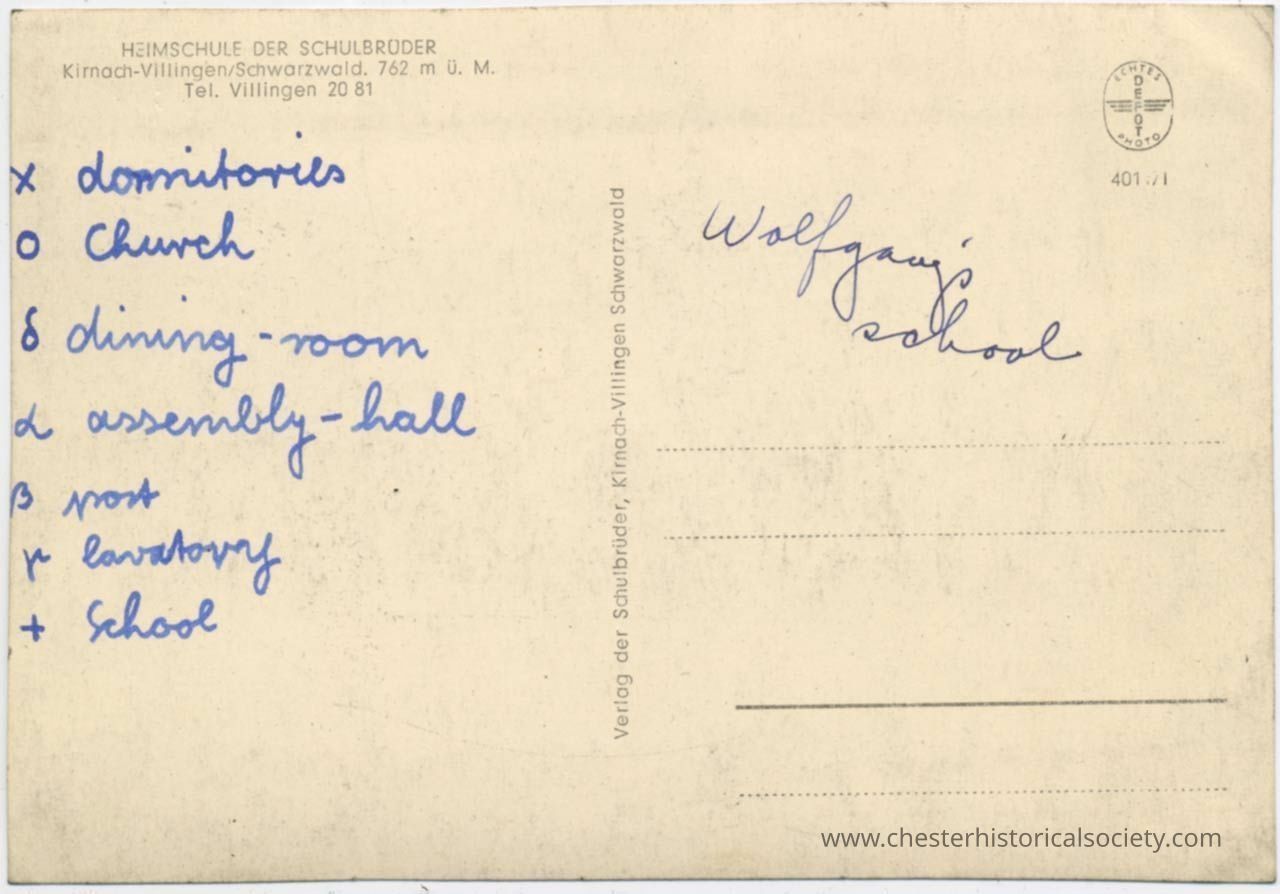 HEIMSCHULE DER SCHULBRÜDER
Kirnach-Villingen/Schwarzwald. 762 m ü. M.
Tel. Villingen 20 81
x dormitories
o Church
δ dining-room
α assembly-hall
β post
γ lavatory
+ School
Verlag der Schulbrüder, Kirnach-Villingen Schwarzwald
ECHTES
DEFOT
PHOTO
Wolfgang's
school
www.chesterhistoricalsociety.com